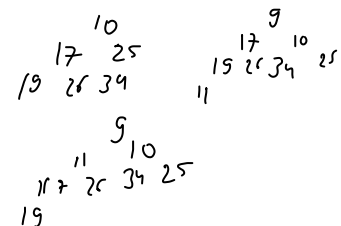 10
17 25
19 26 34
9
17 10
19 26 34 25
11
9
11 10
17 26 34 25
19